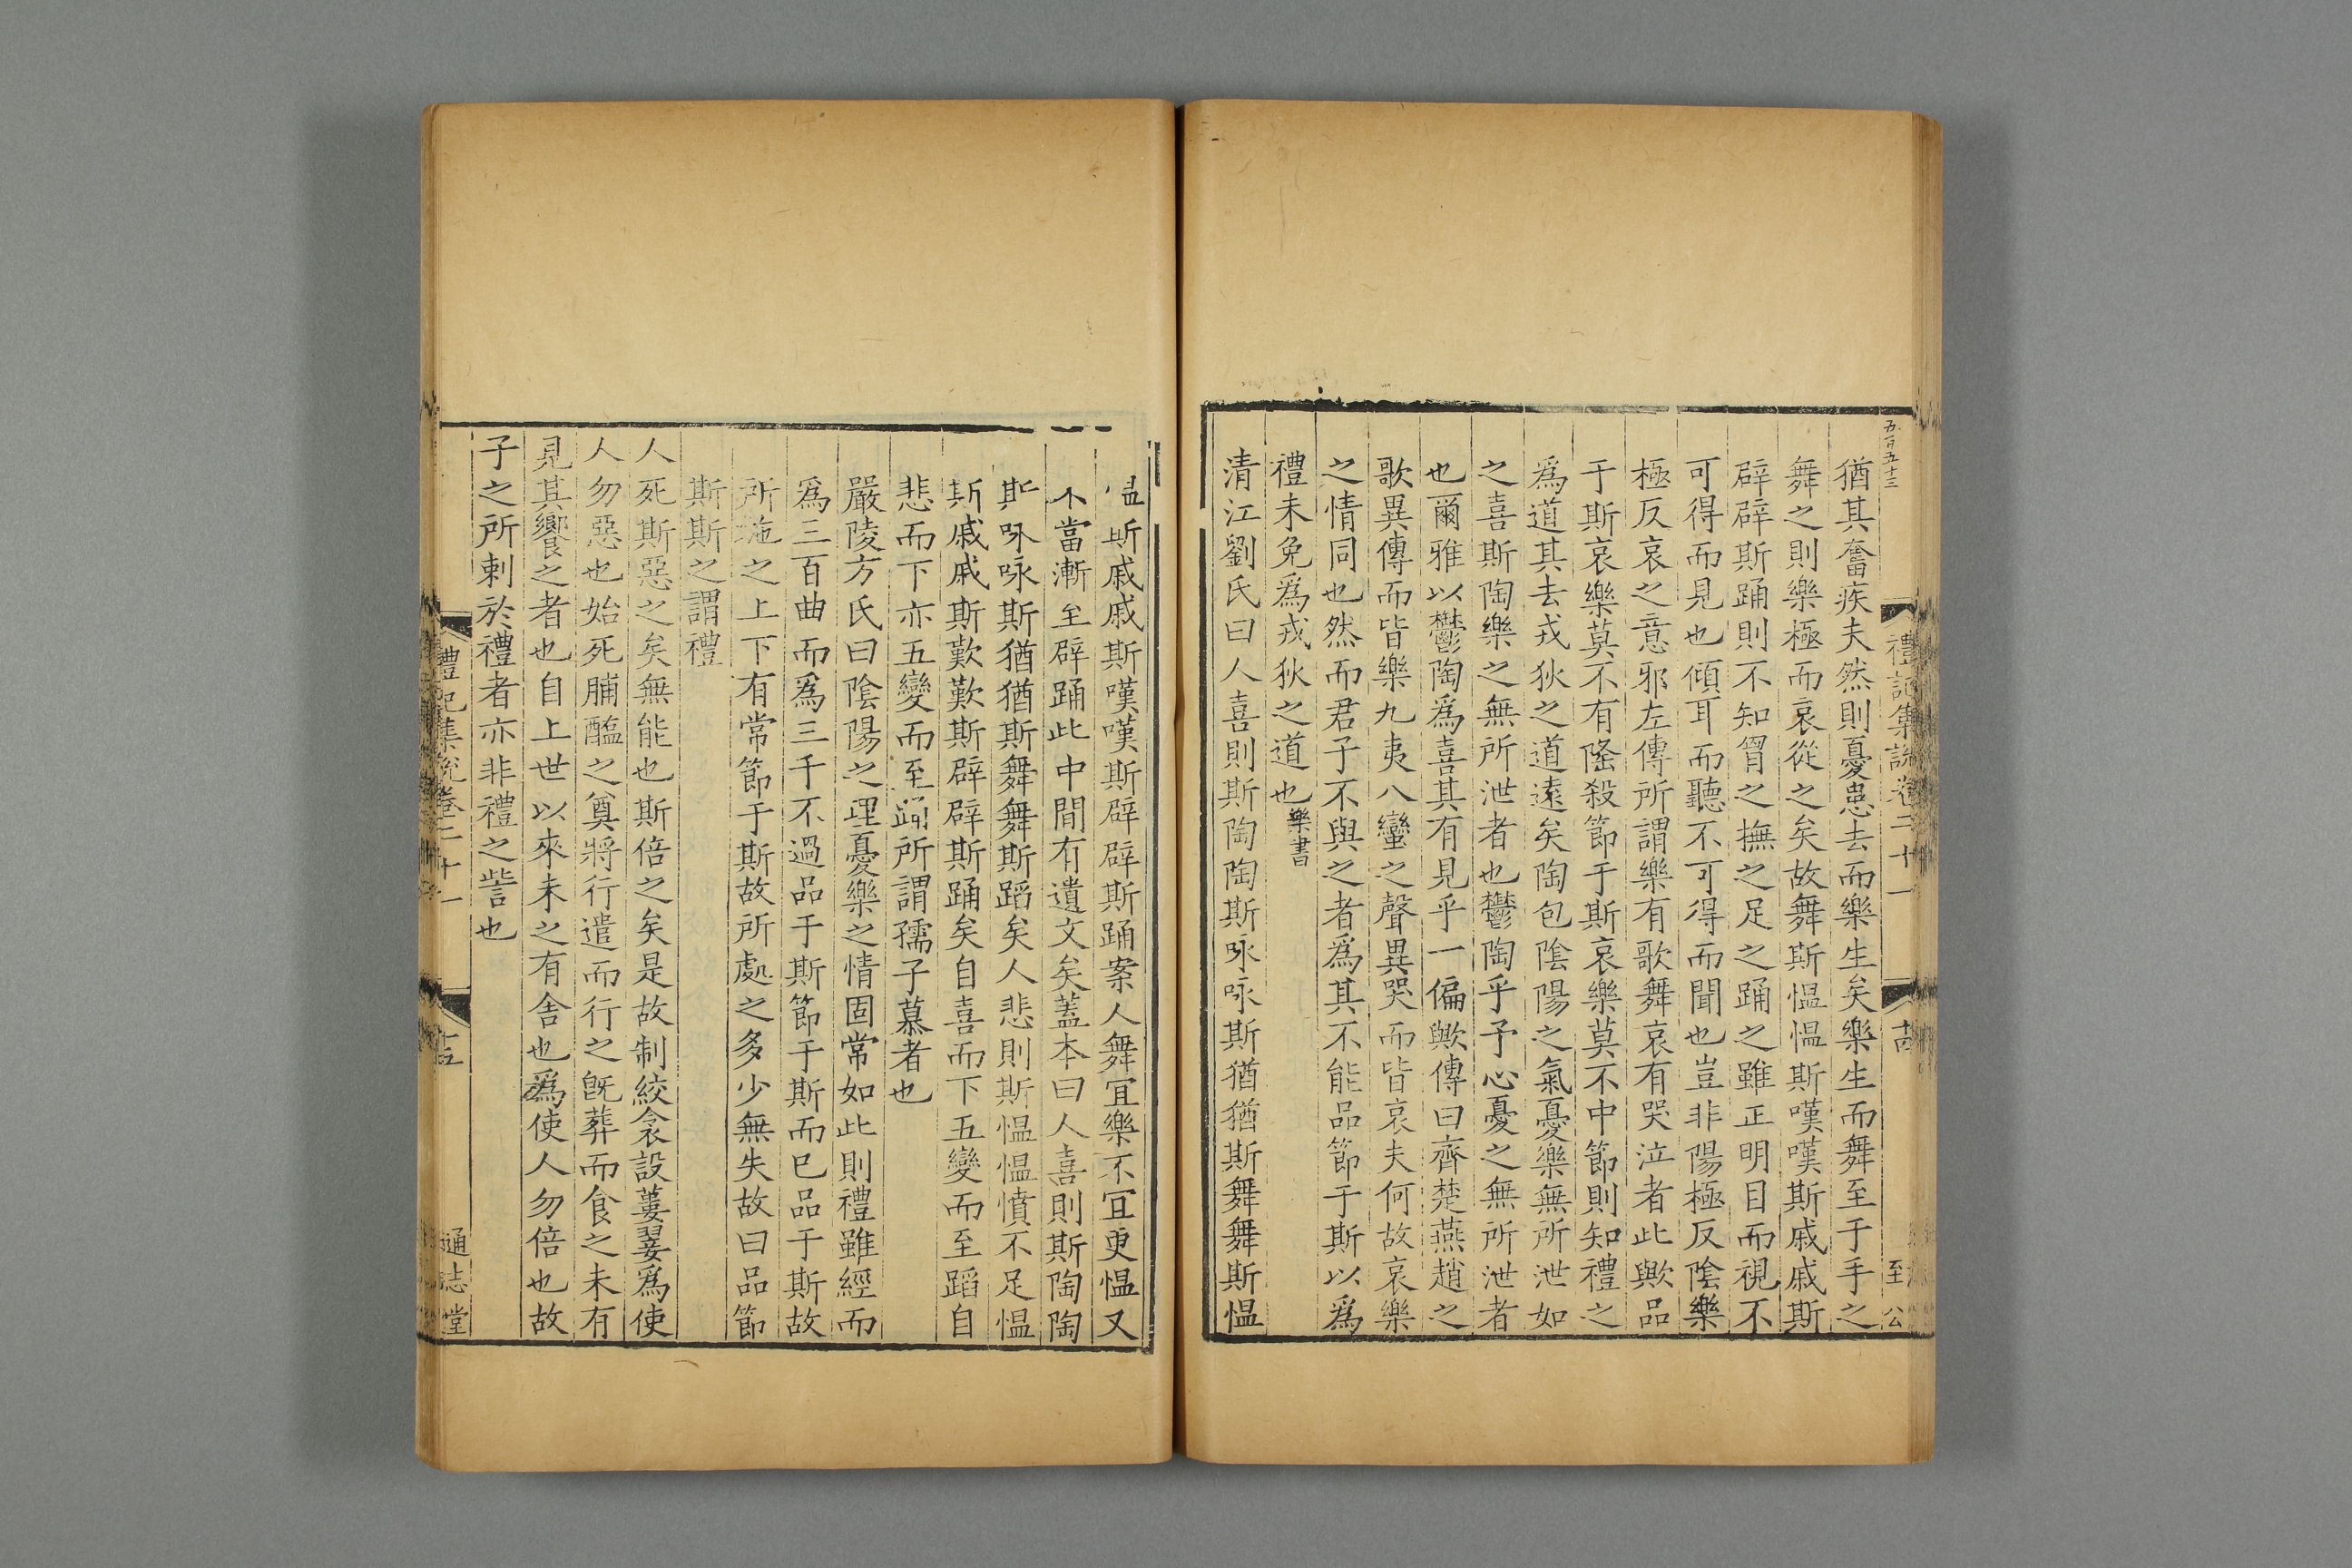 五百五十三
禮記集說卷二十一
至公
猶其奮疾夫然則憂患去而樂生矣樂生而舞至于手之
舞之則樂極而哀從之矣故舞斯愠愠斯嘆嘆斯戚戚斯
辟辟斯踊則不知胷之撫之足之踊之雖正明目而視不
可得而見也傾耳而聽不可得而聞也豈非陽極反陰樂
極反哀之意邪左傳所謂樂有歌舞哀有哭泣者此歟品
于斯哀樂莫不有隆殺節于斯哀樂莫不中節則知禮之
爲道其去戎狄之道遠矣陶包陰陽之氣憂樂無所泄如
之喜斯陶樂之無所泄者也鬱陶乎予心憂之無所泄者
也爾雅以鬱陶爲喜其有見乎一偏歟傳曰齊楚燕趙之
歌異傳而皆樂九夷八蠻之聲異哭而皆哀夫何故哀樂
之情同也然而君子不與之者爲其不能品節于斯以爲
禮未免爲戎狄之道也樂書
清江劉氏曰人喜則斯陶陶斯咏咏斯猶猶斯舞舞斯愠
愠斯戚戚斯嘆嘆斯辟辟斯踊案人舞宜樂不宜更愠又
不當漸至辟踊此中間有遺文矣蓋本曰人喜則斯陶陶
斯咏咏斯猶猶斯舞舞斯蹈矣人悲則斯愠愠憤不足愠
斯戚戚斯歎歎斯辟辟斯踊矣自喜而下五變而至蹈自
悲而下亦五變而至踊所謂孺子慕者也
嚴陵方氏曰陰陽之理憂樂之情固常如此則禮雖經而
爲三百曲而爲三千不過品于斯節于斯而已品于斯故
所施之上下有常節于斯故所處之多少無失故曰品節
斯斯之謂禮
人死斯惡之矣無能也斯倍之矣是故制絞衾設蔞翣爲使
人勿惡也始死脯醢之奠將行遣而行之旣葬而食之未有
見其饗之者也自上世以來未之有舍也爲使人勿倍也故
子之所刺於禮者亦非禮之訾也
禮記集說卷二十一
通志堂